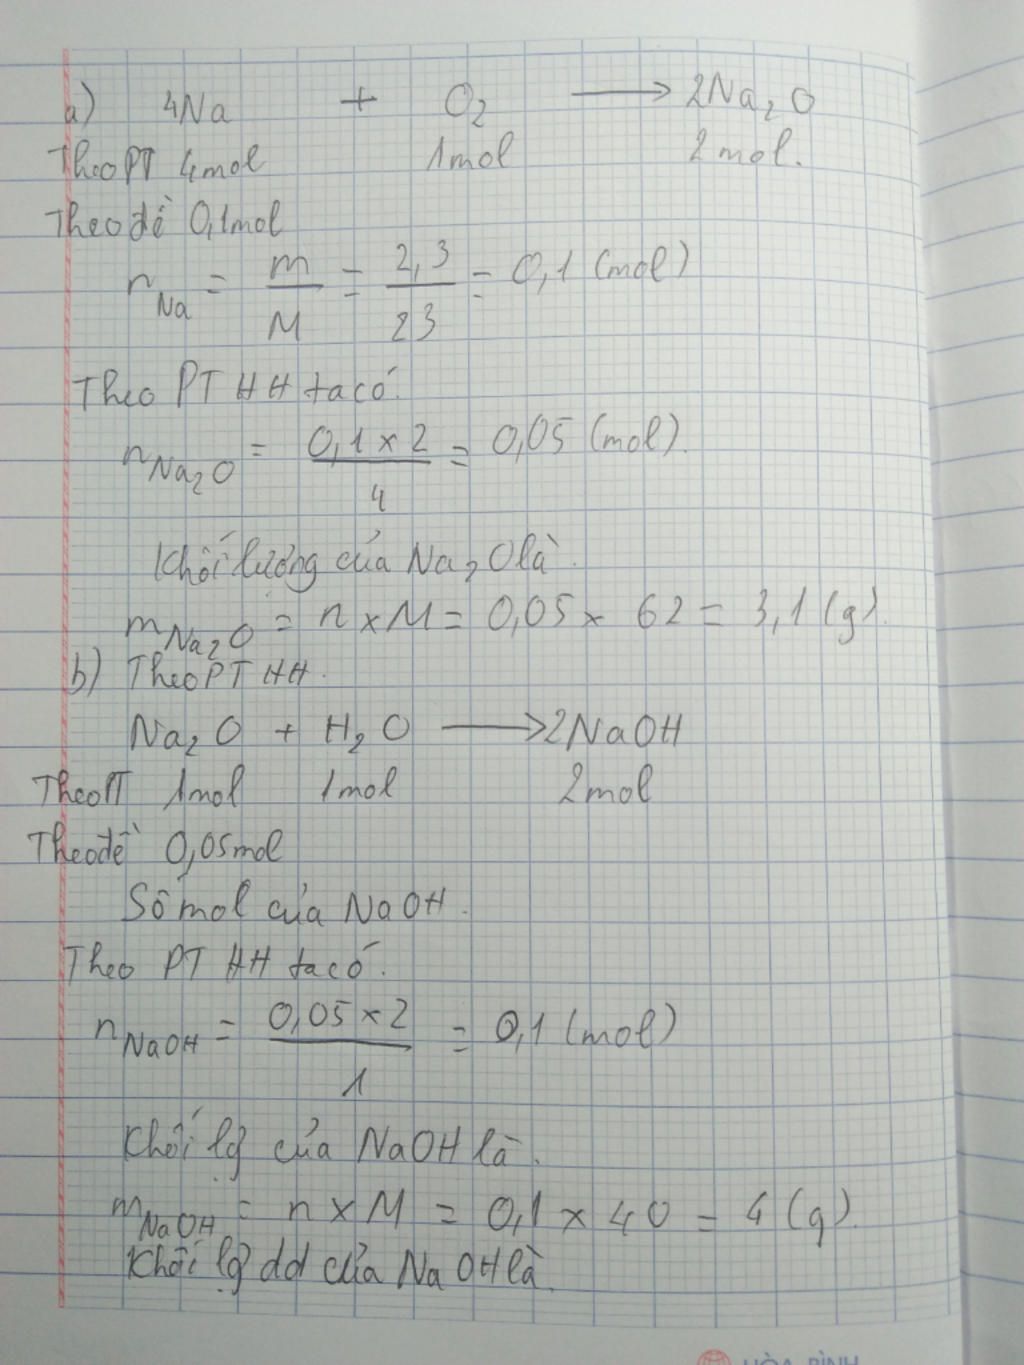 a) 4Na + O₂ ⟶ 2Na₂O
Theo PT 4mol 1mol 2mol.
Theo đề 0,1mol
n_Na = m/M = 2,3/23 = 0,1 (mol)
Theo PT HH ta có.
n_Na₂O = 0,1 × 2/4 = 0,05 (mol).
Khối lượng của Na₂O là.
m_Na₂O = n × M = 0,05 × 62 = 3,1 (g).
b) Theo PT HH.
Na₂O + H₂O ⟶ 2NaOH
Theo PT 1mol 1mol 2mol
Theo đề 0,05mol
Số mol của NaOH.
Theo PT HH ta có.
n_NaOH = 0,05 × 2/1 = 0,1 (mol)
Khối lg của NaOH là.
m_NaOH = n × M = 0,1 × 40 = 4 (g).
Khối lg dd của NaOH là.
HÒA BÌNH